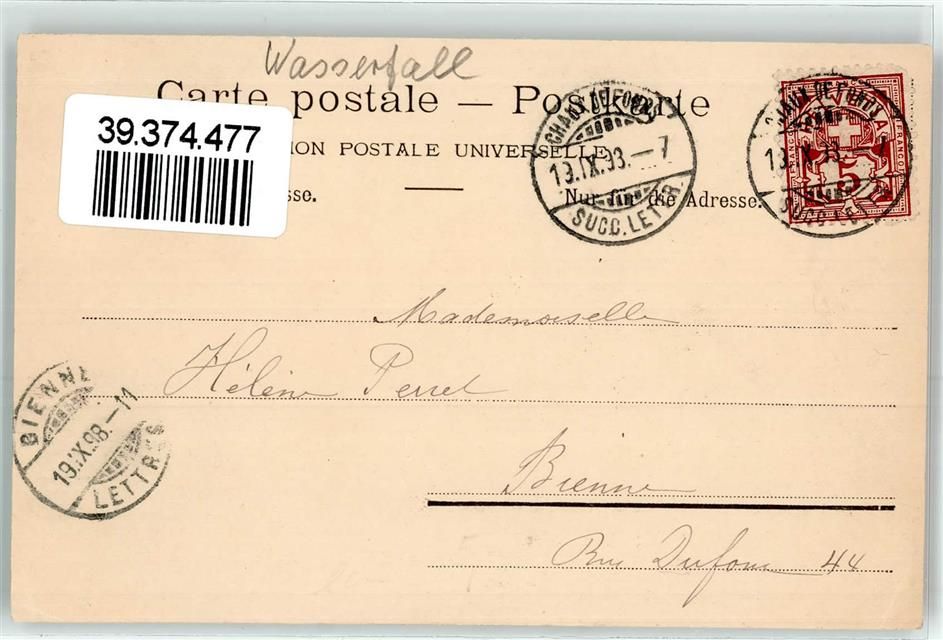 Wasserfall
Carte postale — Postkarte
39.374.477
ION POSTALE UNIVERSELLE
sse. Nur für die Adresse.
CHAUX DE FONDS
19.IX.98.–7
SUCC. LETTR.
CHAUX DE FONDS
19.IX.98.–7
SUCC. LETTR.
FRANCO
5
FRANCO
Mademoiselle
Hélène Perret
Bienne
Rue Dufour 44
BIENNE
19.IX.98.–11
LETTRES